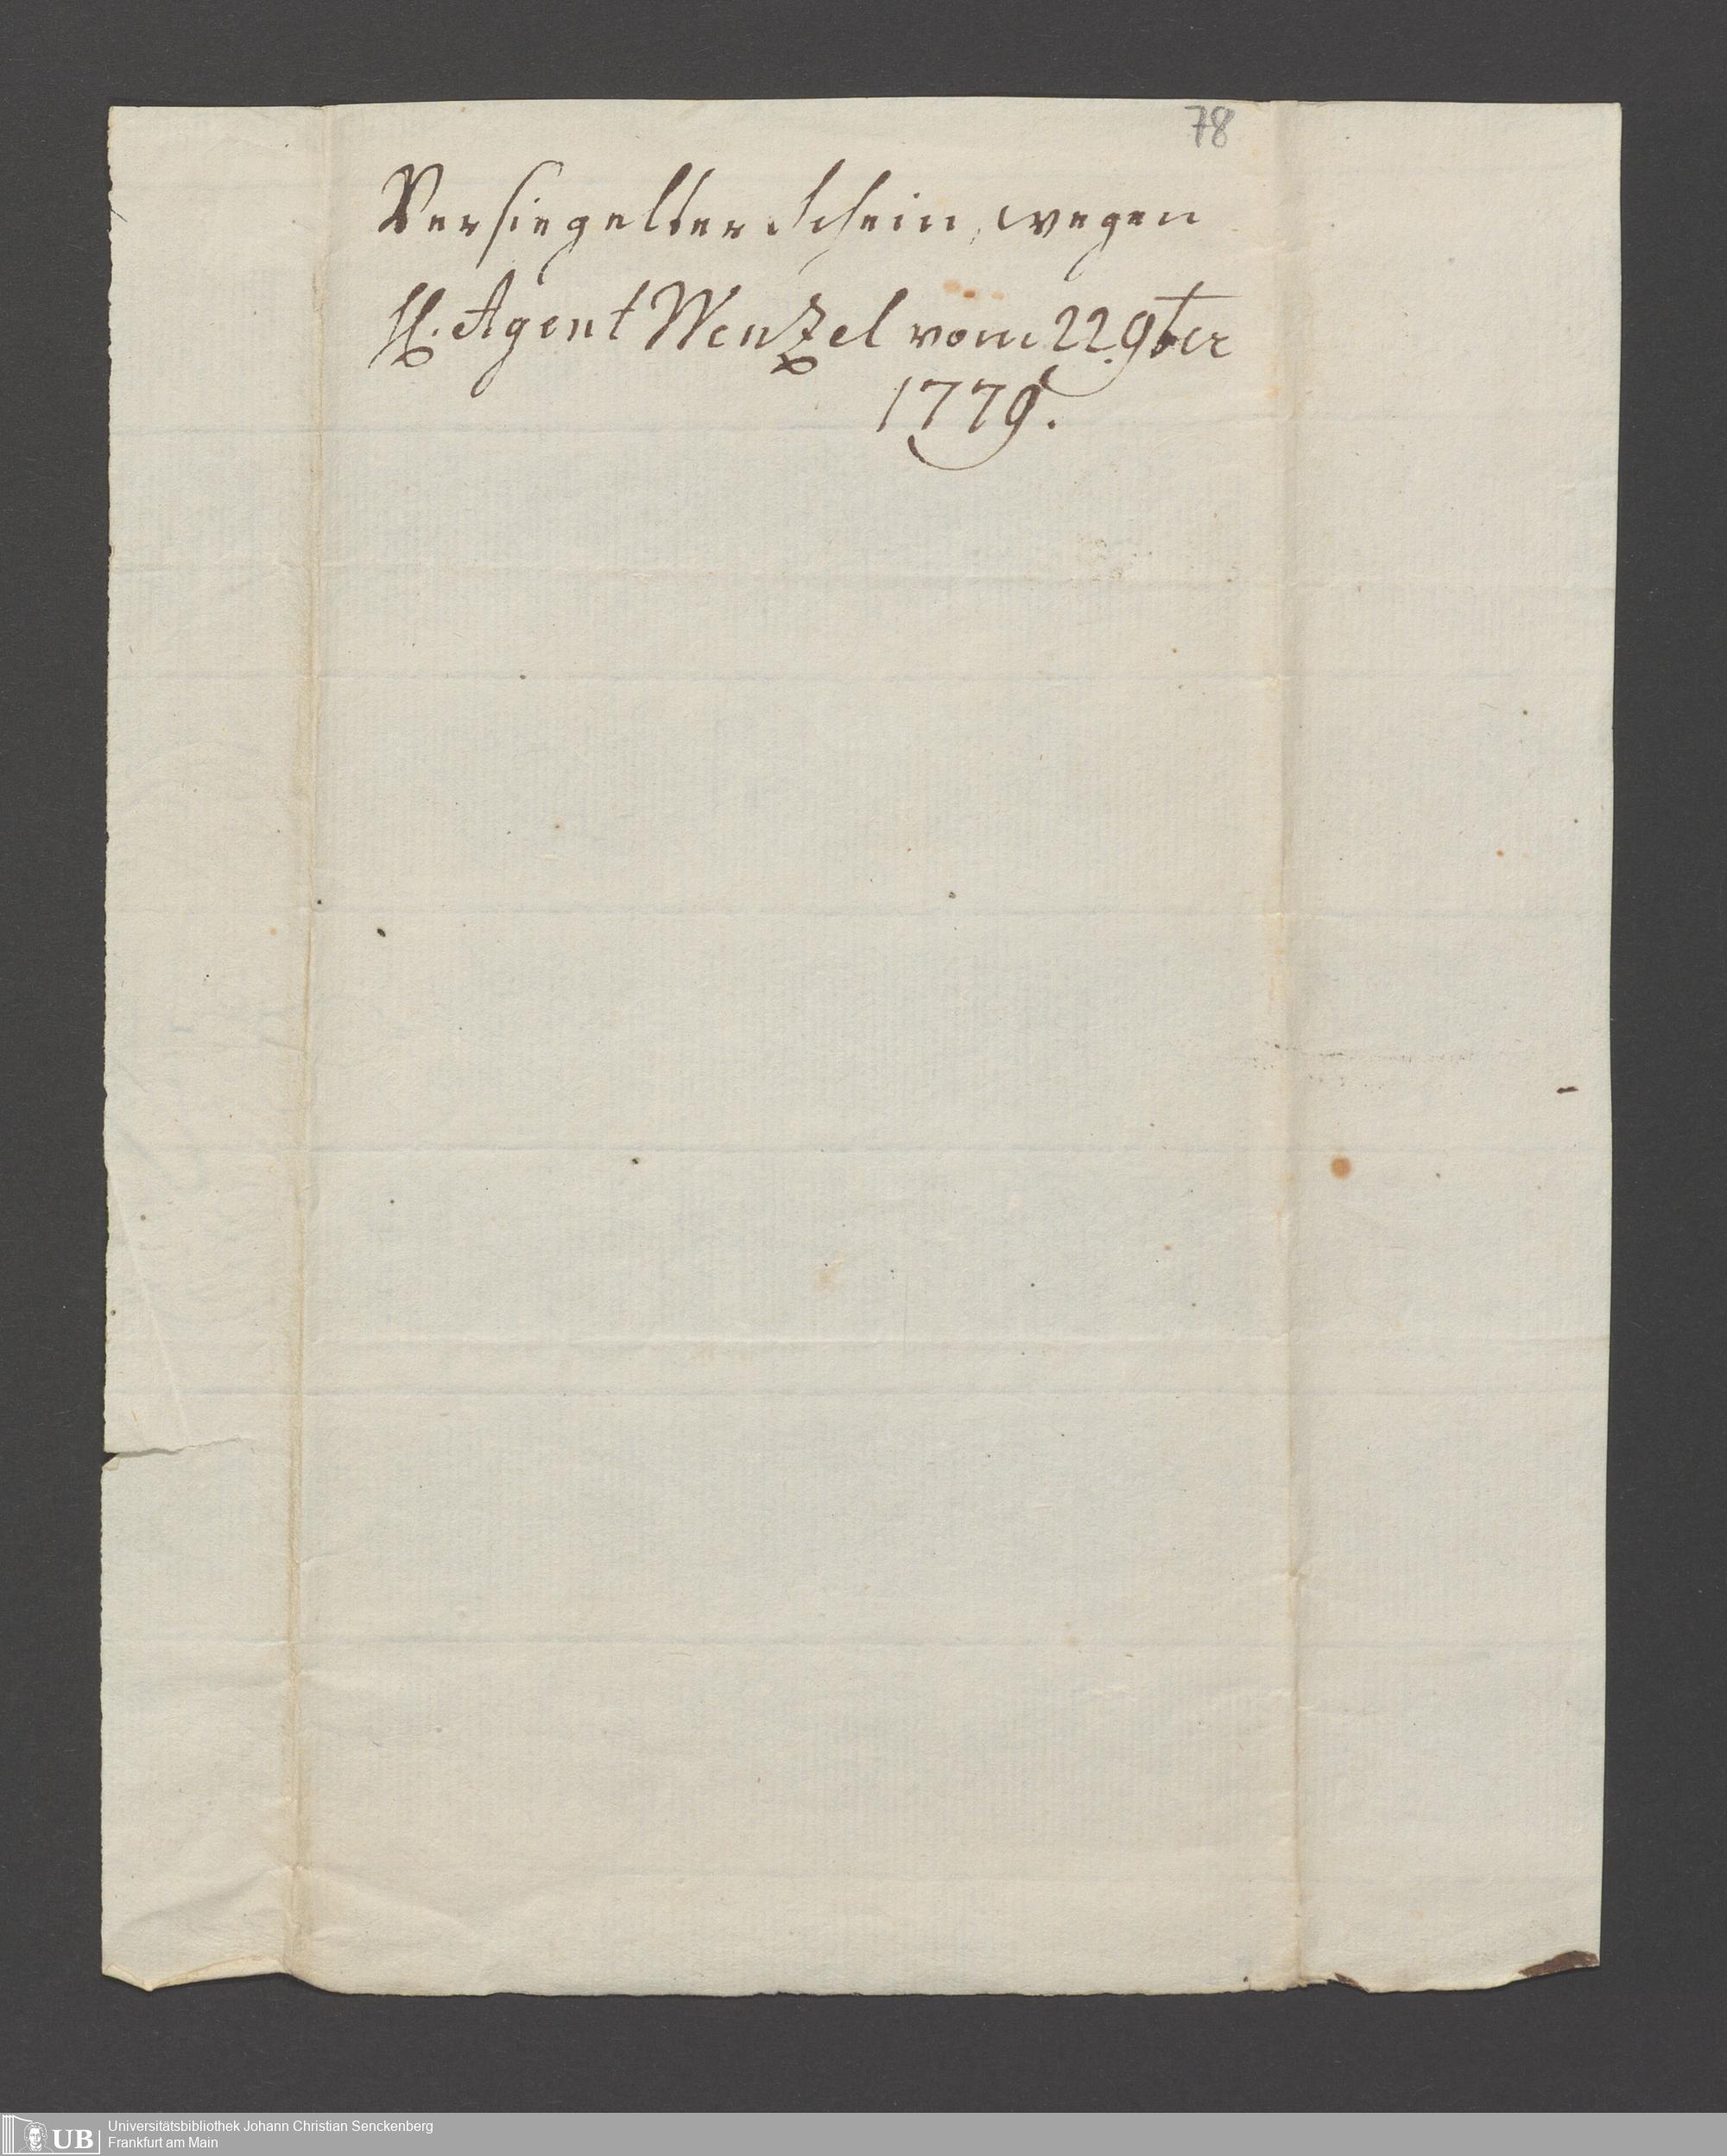 78
Versiegelter Schein, wegen
H. Agent Wenzel vom 22. 9ber
1779.
UB
Universitätsbibliothek Johann Christian Senckenberg
Frankfurt am Main